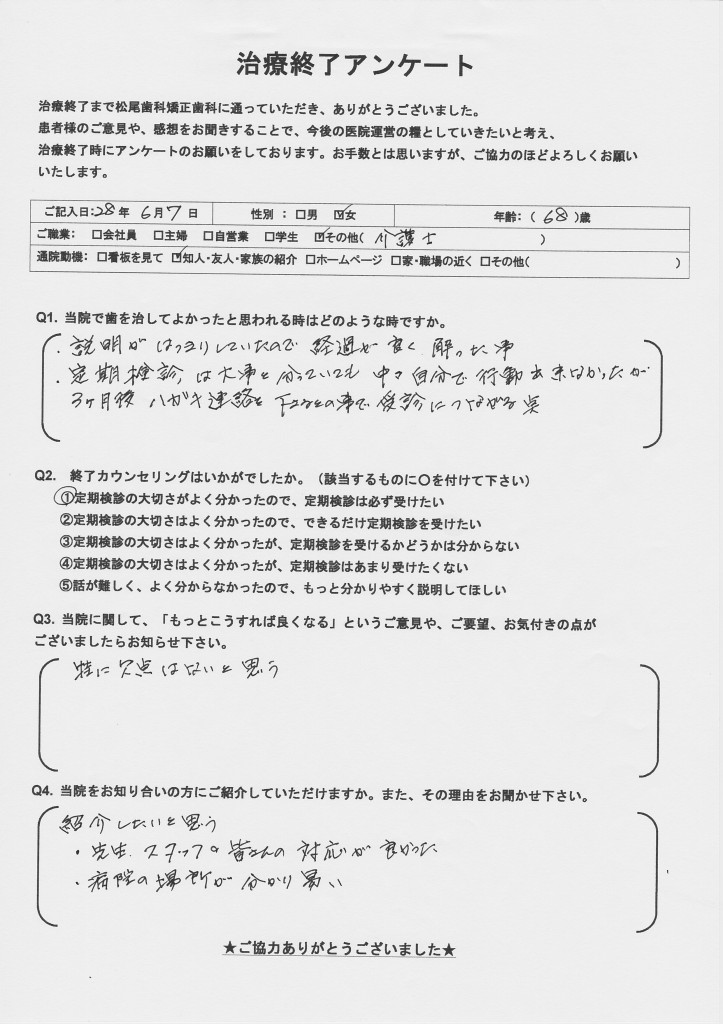 治療終了アンケート
治療終了まで松尾歯科矯正歯科に通っていただき、ありがとうございました。
患者様のご意見や、感想をお聞きすることで、今後の医院運営の糧としていきたいと考え、
治療終了時にアンケートのお願いをしております。お手数とは思いますが、ご協力のほどよろしくお願い
いたします。
ご記入日:28年 6月7日 性別 : □男 ☑女 年齢:( 68 )歳
ご職業: □会社員 □主婦 □自営業 □学生 ☑その他( 介護士 )
通院動機: □看板を見て ☑知人・友人・家族の紹介 □ホームページ □家・職場の近く □その他( )
Q1. 当院で歯を治してよかったと思われる時はどのような時ですか。
・説明がはっきりしていたので 経過が良く 解った事
・定期検診は大事と分っていても 中々自分で行動出来なかったが
3ヶ月後 ハガキ連絡を下さるとの事で 受診につながる点
Q2. 終了カウンセリングはいかがでしたか。(該当するものに〇を付けて下さい)
①定期検診の大切さがよく分かったので、定期検診は必ず受けたい
②定期検診の大切さはよく分かったので、できるだけ定期検診を受けたい
③定期検診の大切さはよく分かったが、定期検診を受けるかどうかは分からない
④定期検診の大切さはよく分かったが、定期検診はあまり受けたくない
⑤話が難しく、よく分からなかったので、もっと分かりやすく説明してほしい
Q3. 当院に関して、「もっとこうすれば良くなる」というご意見や、ご要望、お気付きの点が
ございましたらお知らせ下さい。
特に欠点はないと思う
Q4. 当院をお知り合いの方にご紹介していただけますか。また、その理由をお聞かせ下さい。
紹介したいと思う
・先生、スタッフの皆さんの対応が良かった
・病院の場所が分かり易い
★ご協力ありがとうございました★